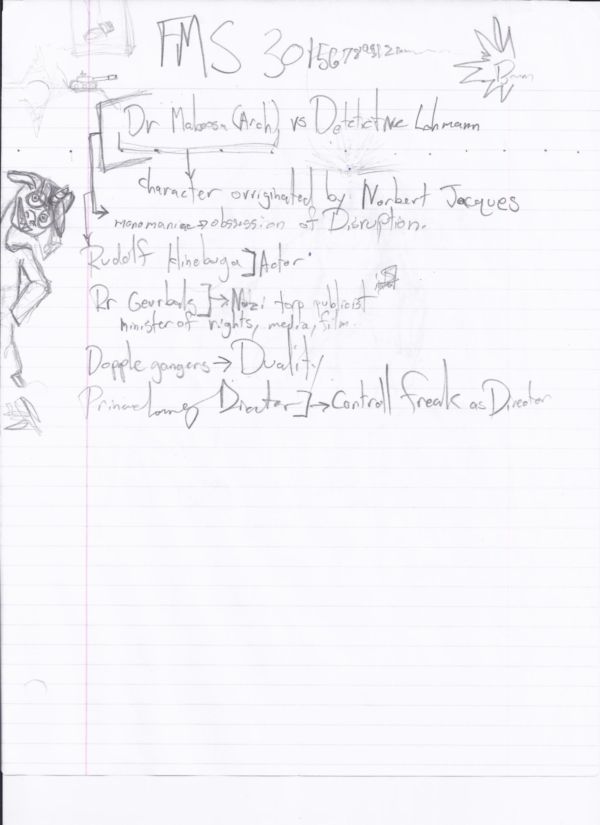 FMS 30156789
Boom
Dr Maboosa (Arch) vs Detetictive Lohmann
character orriginated by Norbert Jacques
monomaniac → obsession of Disruption.
Rudolf Klinebuga] Actor
Dr Geurbals] → Nazi torp publicist
minister of rights, media, film.
Dopple gangers → Duality
Director] → Controll freak as Director